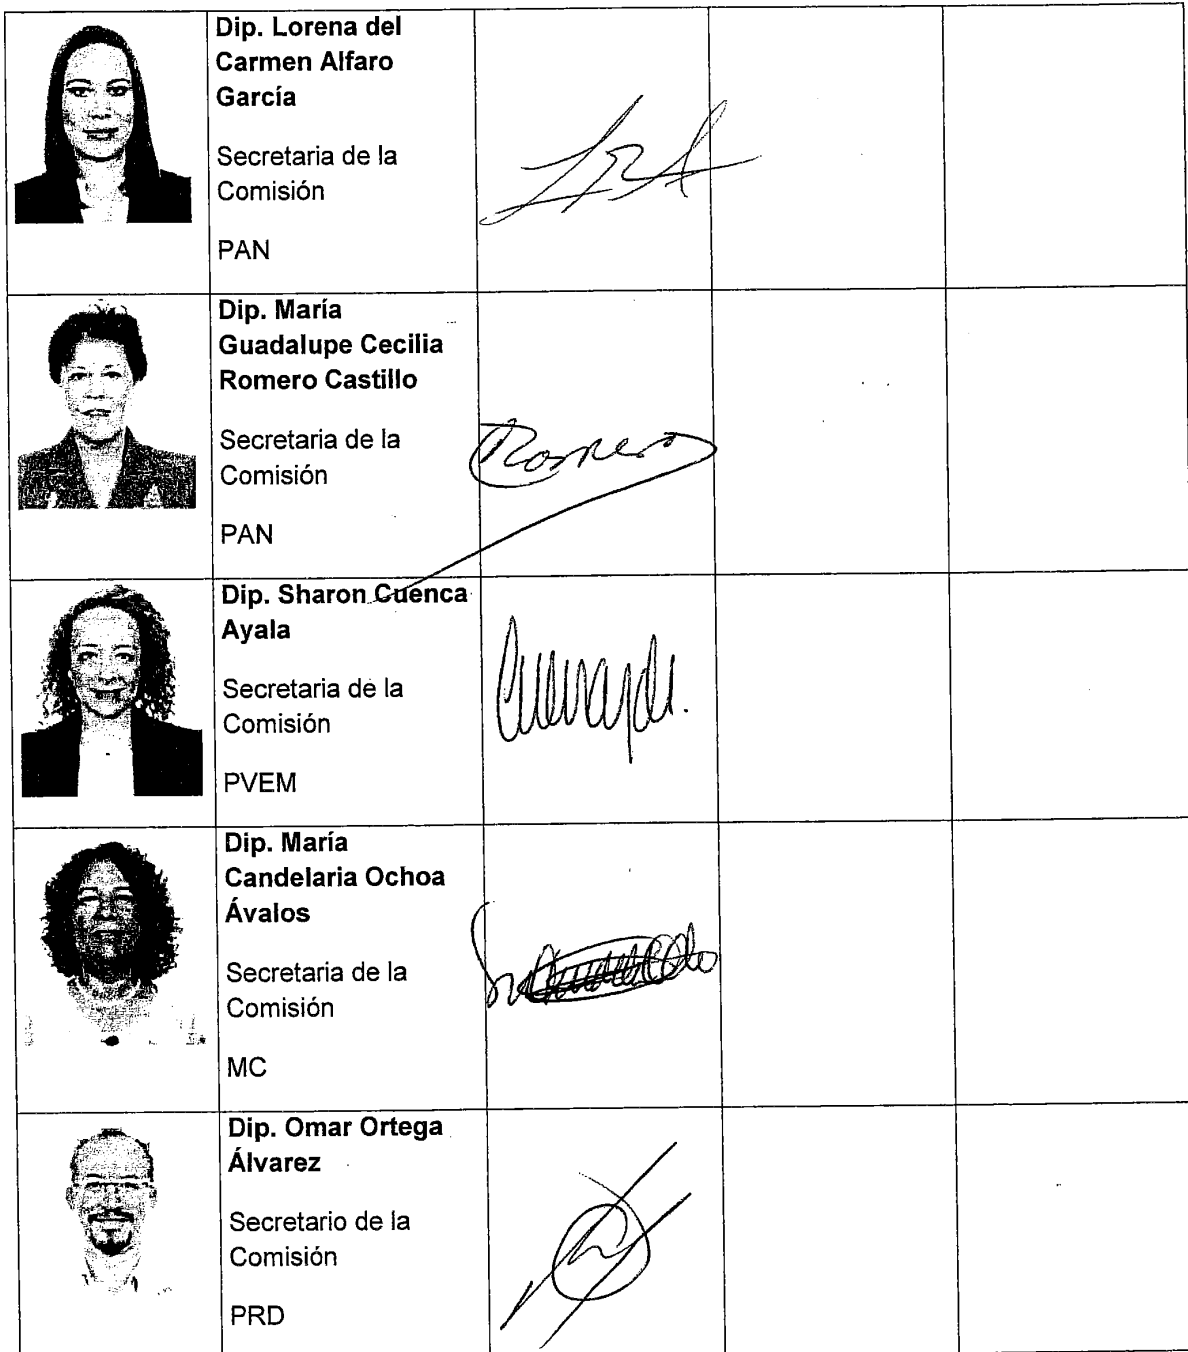 Dip. Lorena del
Carmen Alfaro
García
Secretaria de la
Comisión
PAN
Dip. María
Guadalupe Cecilia
Romero Castillo
Secretaria de la
Comisión
Romero
PAN
Dip. Sharon Cuenca
Ayala
Secretaria de la
Comisión
PVEM
Dip. María
Candelaria Ochoa
Ávalos
Secretaria de la
Comisión
MC
Dip. Omar Ortega
Álvarez
Secretario de la
Comisión
PRD